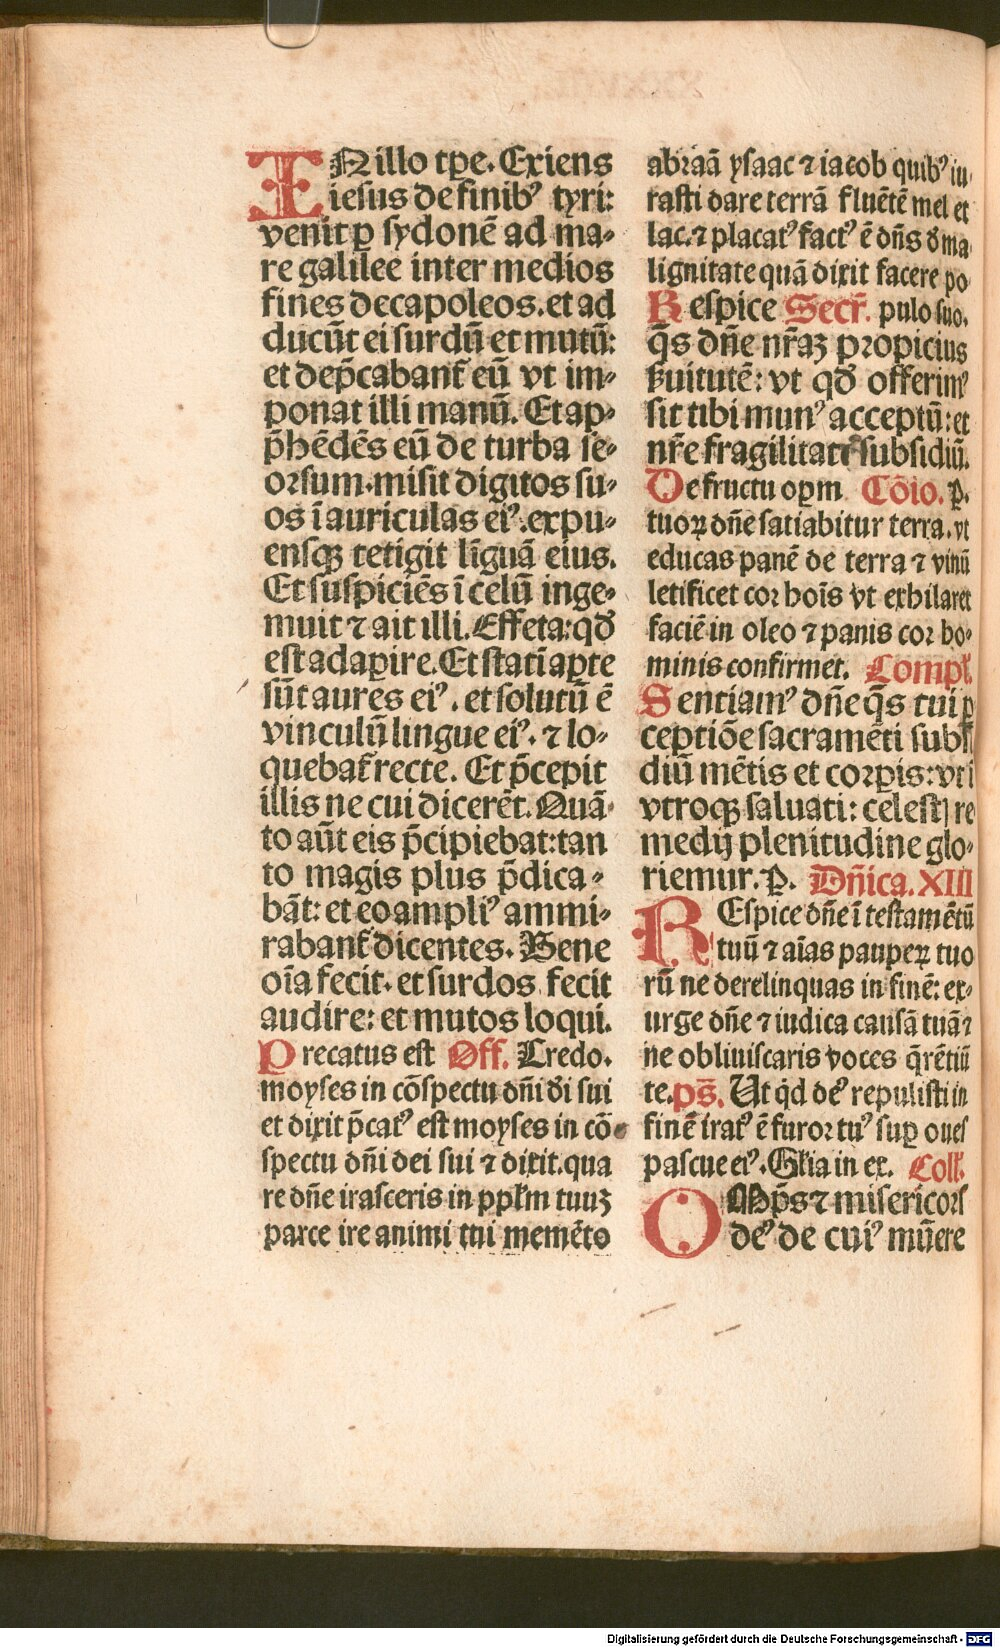 IN illo tp̄e. Exiens
iesus de finibꝰ tyri:
venit ꝑ sydonē ad ma⸗
re galilee inter medios
fines decapoleos. et ad
ducūt ei surdū et mutū:
et dep̄cabant᷑ eū vt im⸗
ponat illi manū. Et ap⸗
p̄hēdēs eū de turba se⸗
orsum. misit digitos su⸗
os ī auriculas eiꝰ. expu⸗
ensqꝫ tetigit linguā eius.
Et suspiciēs ī celū inge⸗
muit ⁊ ait illi. Effeta: qđ
est adaꝑire. Et statī aꝑte
sūt aures eiꝰ. et solutū ē
vinculū lingue eiꝰ. ⁊ lo⸗
quebat᷑ recte. Et p̄cepit
illis ne cui dicerēt. Quā⸗
to aūt eis p̄cipiebat: tan
to magis plus p̄dica⸗
bāt: et eo ampliꝰ ammi⸗
rabant᷑ dicentes. Bene
oīa fecit. et surdos fecit
audire: et mutos loqui.
Precatus est Off. Credo.
moyses in cōspectu dn̄i đi sui
et dixit p̄catꝰ est moyses in cō⸗
spectu dn̄i dei sui ⁊ dixit. qua
re dn̄e irasceris in pplm̄ tuuꝫ
parce ire animi tui memēto
abraā ysaac ⁊ iacob quibꝰ iu⸗
rasti dare terrā fluētē mel et
lac. ⁊ placatꝰ factꝰ ē dn̄s đ ma
lignitate quā dixit facere po
Respice Secr̄. pulo suo.
q̄s dn̄e nr̄aꝫ propicius
ẜuitutē: vt qđ offerimꝰ
sit tibi munꝰ acceptū: et
nr̄e fragilitatis subsidiū.
De fructu oꝑm Cōio. ꝑ.
tuoꝝ dn̄e satiabitur terra. vt
educas panē de terra ⁊ vinū
letificet cor hoīs vt exhilaret
faciē in oleo ⁊ panis cor ho⸗
minis confirmet. Compl̄.
Sentiamꝰ dn̄e q̄s tui ꝑ
ceptiōe sacramēti subsi
diū mētis et corꝑis: vt ī
vtroqꝫ saluati: celestꝭ re
medij plenitudine glo⸗
riemur. ꝑ. Dn̄ica. XIII
REspice dn̄e ī testamētū
tuū ⁊ aīas paupeꝝ tuo
rū ne derelinquas in finē: ex⸗
urge dn̄e ⁊ iudica causā tuā ⁊
ne obliuiscaris voces q̄rētiū
te. ps̄. Ut qͥd deꝰ repulisti in
finē iratꝰ ē furor tuꝰ suꝑ oues
pascue eiꝰ. Gl̄ia in ex. Coll̄.
OMp̄s ⁊ misericors
deꝰ de cuiꝰ mūere
Digitalisierung gefördert durch die Deutsche Forschungsgemeinschaft - DFG